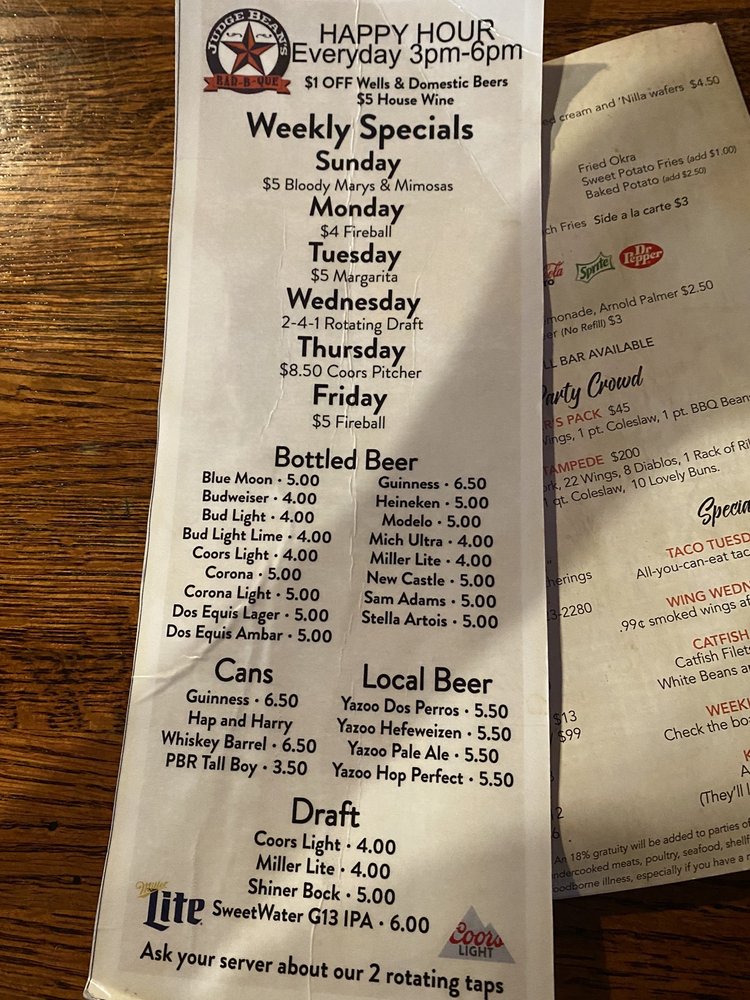 JUDGE BEAN'S
BAR-B-QUE
HAPPY HOUR
Everyday 3pm-6pm
$1 OFF Wells & Domestic Beers
$5 House Wine
Weekly Specials
Sunday
$5 Bloody Marys & Mimosas
Monday
$4 Fireball
Tuesday
$5 Margarita
Wednesday
2-4-1 Rotating Draft
Thursday
$8.50 Coors Pitcher
Friday
$5 Fireball
Bottled Beer
Blue Moon • 5.00
Budweiser • 4.00
Bud Light • 4.00
Bud Light Lime • 4.00
Coors Light • 4.00
Corona • 5.00
Corona Light • 5.00
Dos Equis Lager • 5.00
Dos Equis Ambar • 5.00
Guinness • 6.50
Heineken • 5.00
Modelo • 5.00
Mich Ultra • 4.00
Miller Lite • 4.00
New Castle • 5.00
Sam Adams • 5.00
Stella Artois • 5.00
Cans
Guinness • 6.50
Hap and Harry
Whiskey Barrel • 6.50
PBR Tall Boy • 3.50
Local Beer
Yazoo Dos Perros • 5.50
Yazoo Hefeweizen • 5.50
Yazoo Pale Ale • 5.50
Yazoo Hop Perfect • 5.50
Draft
Coors Light • 4.00
Miller Lite • 4.00
Shiner Bock • 5.00
SweetWater G13 IPA • 6.00
Miller
Lite
Coors
LIGHT
Ask your server about our 2 rotating taps
cream and 'Nilla wafers $4.50
Fried Okra
Sweet Potato Fries (add $1.00)
Baked Potato (add $2.50)
Fries Side a la carte $3
Sprite
Dr Pepper
Arnold Palmer $2.50
(No Refill) $3
BAR AVAILABLE
Party Crowd
PACK $45
Wings, 1 pt. Coleslaw, 1 pt. BBQ
$200
22 Wings, 8 Diablos, 1 Rack of
qt. Coleslaw, 10 Lovely Buns.
TACO
All-you-can-eat
3-2280
WING
.99¢ smoked wings
CATFISH
Catfish
White Beans
$13
$99
Check the
(They'll
An 18% gratuity will be added to parties of
meats, poultry, seafood,
illness, especially if you have a